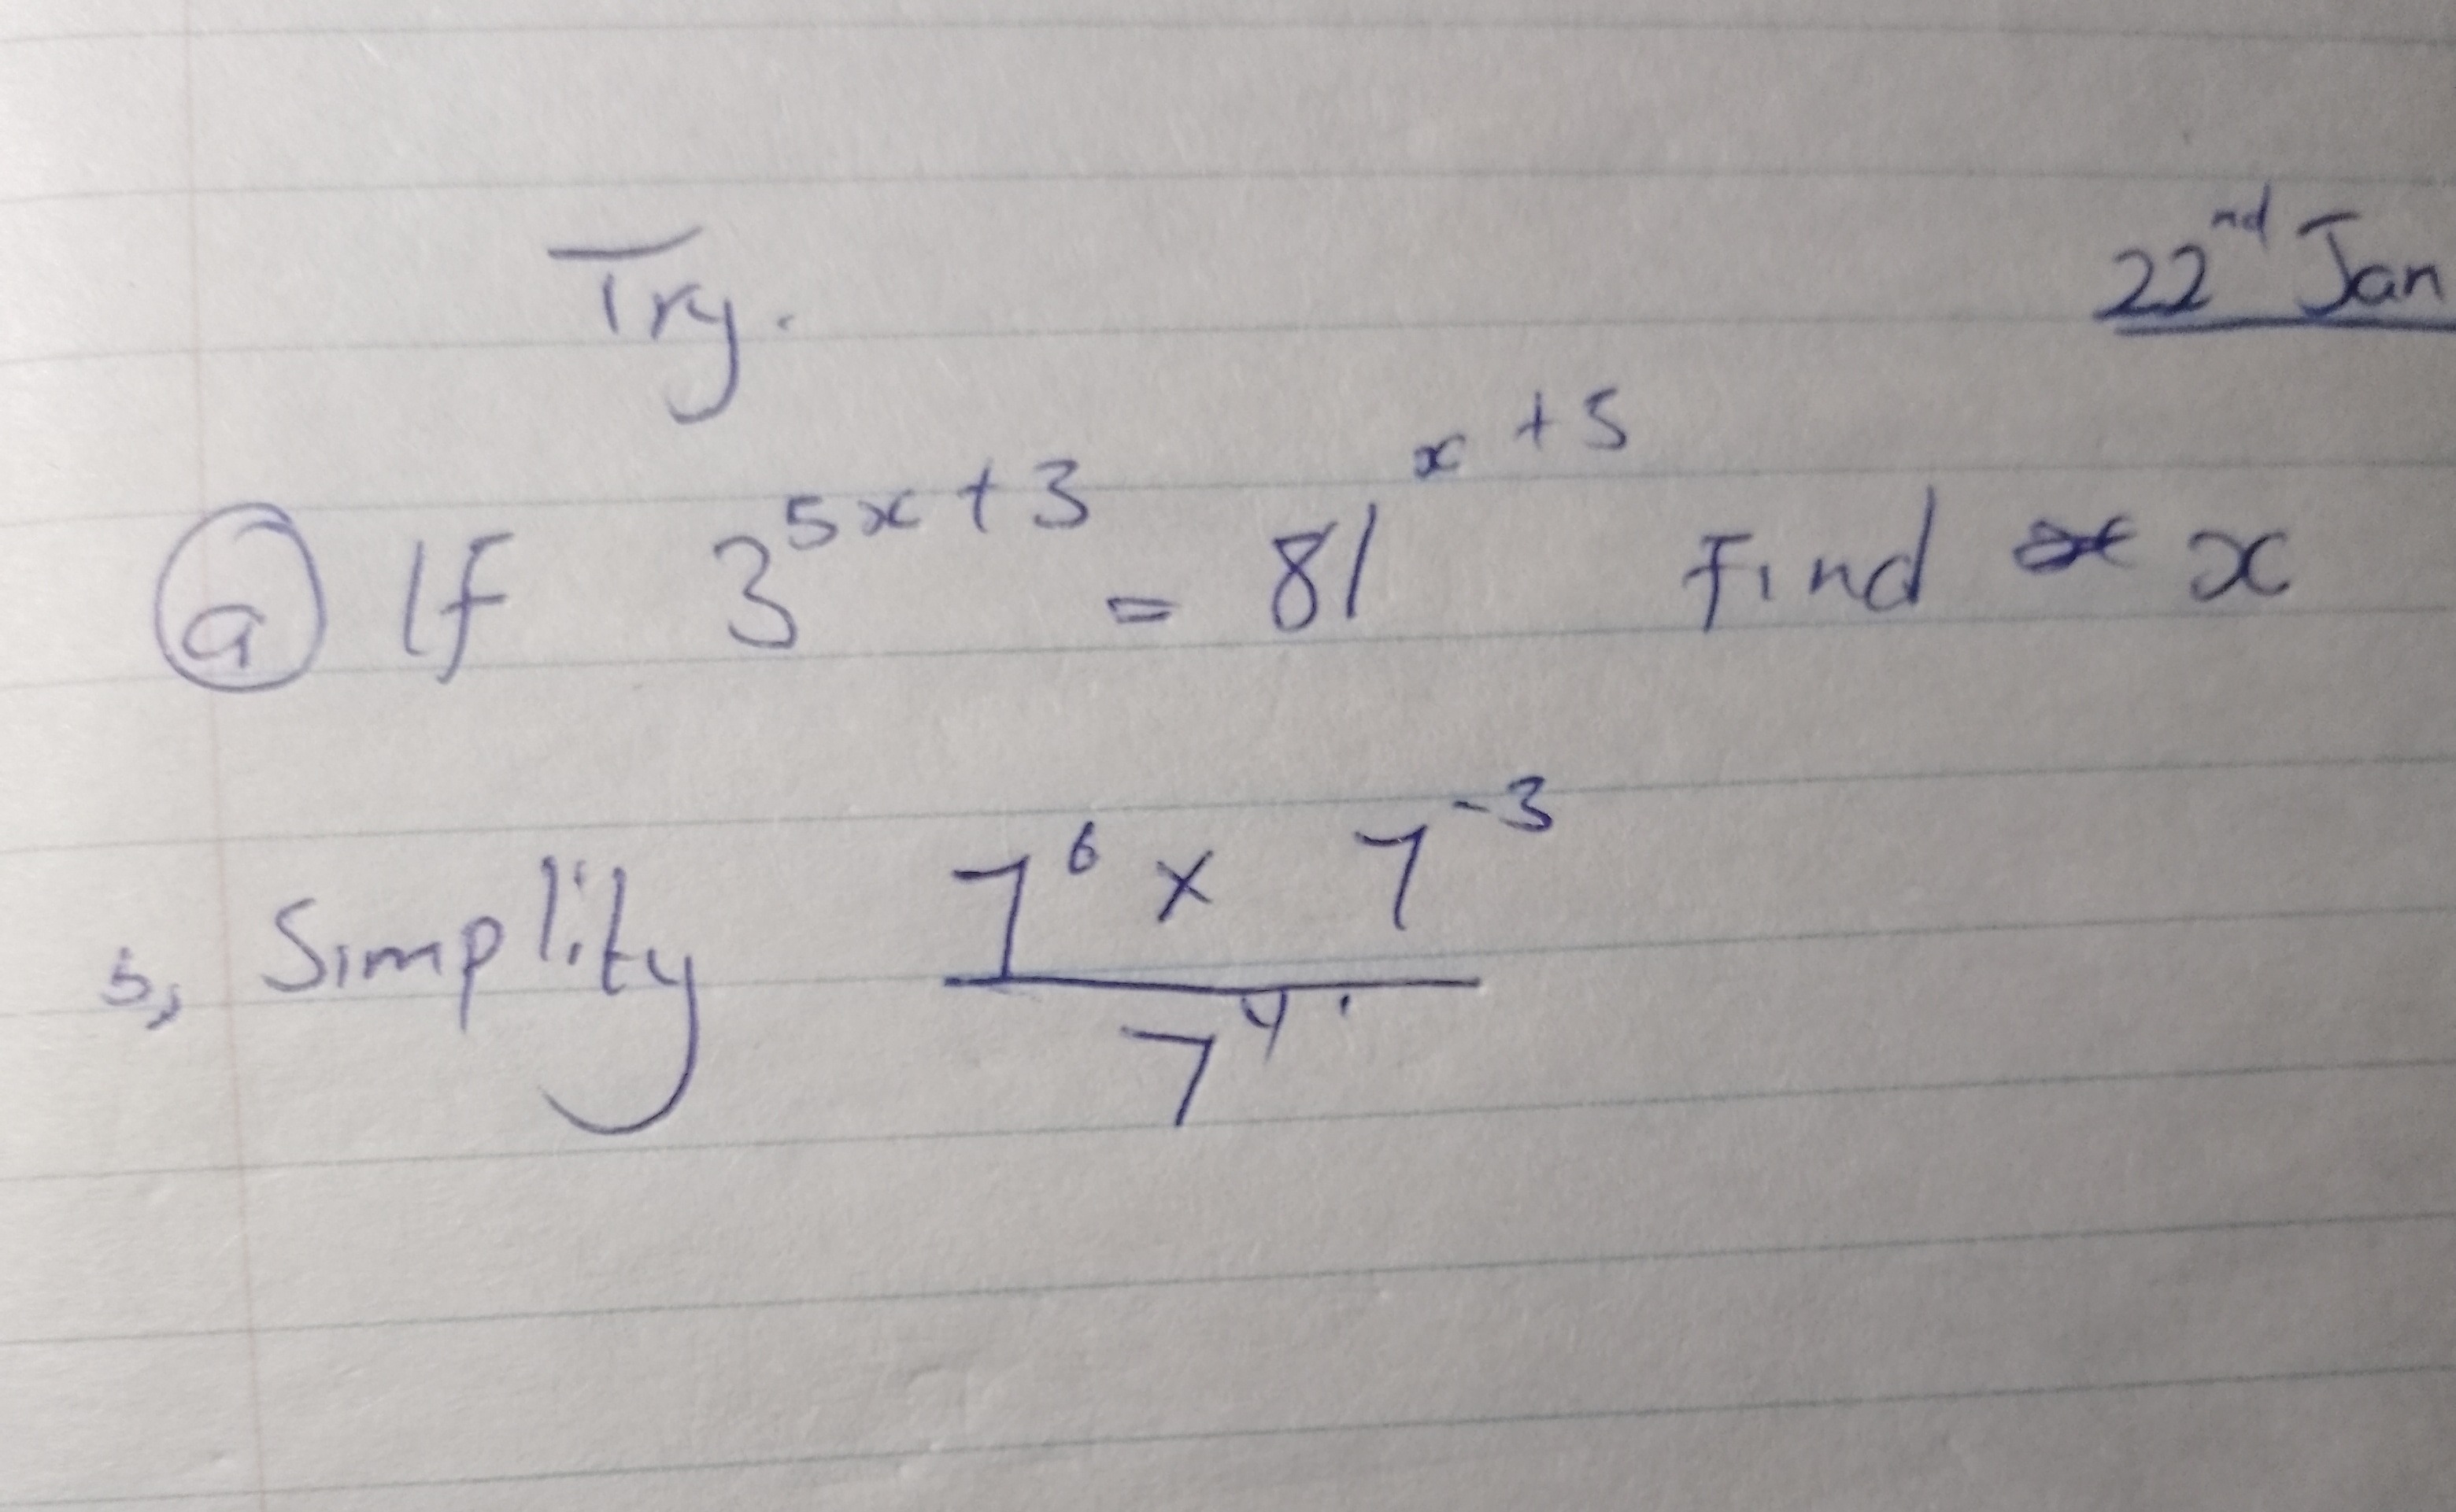 Try.
22nd Jan
(a) If 3^{5x+3} = 81^{x+5} Find x
b, Simplify \frac{7^6 × 7^{-3}}{7^4}